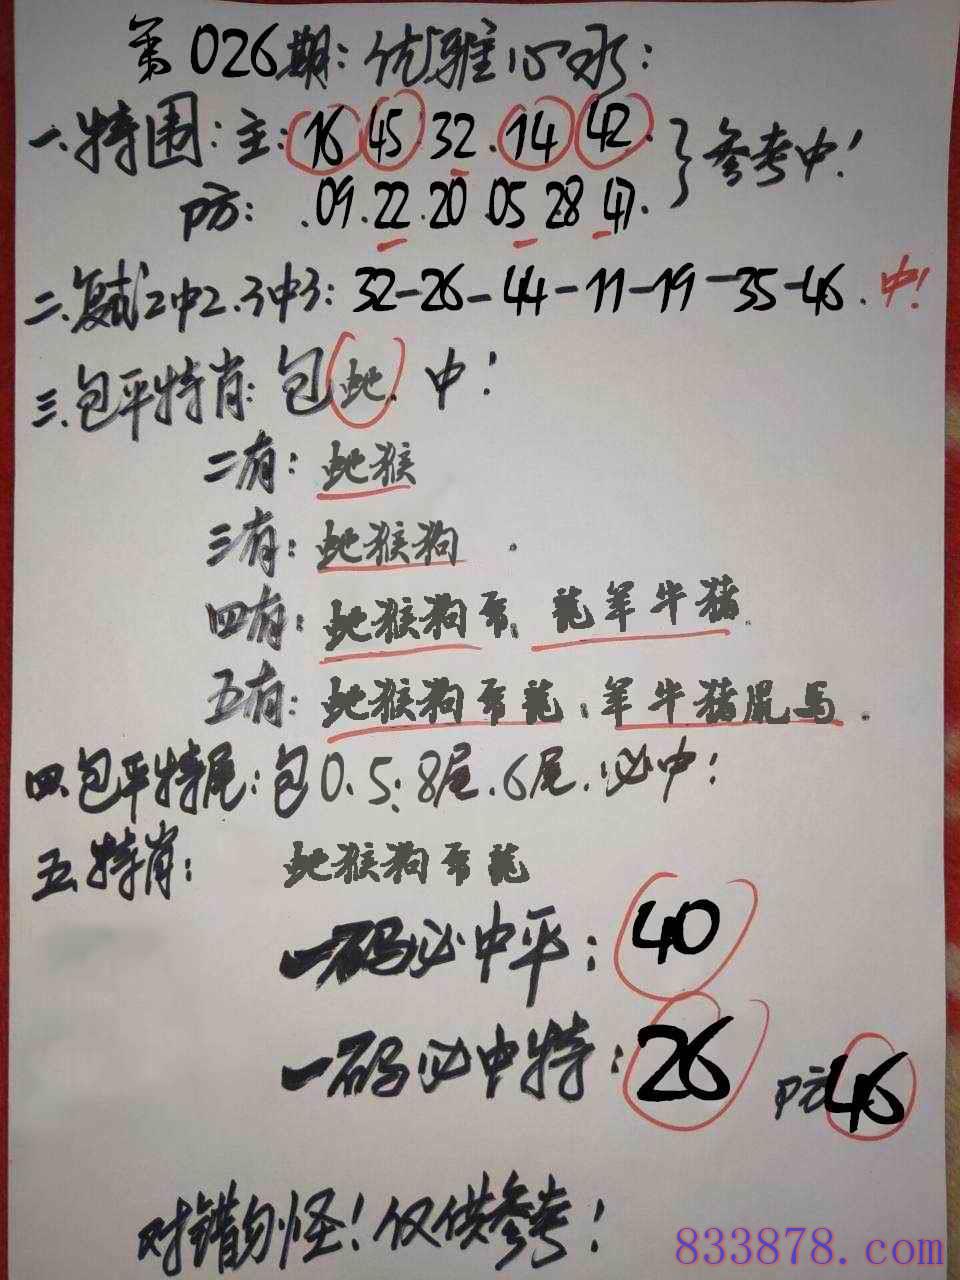 第026期：优雅心水：
一.特围：主：16 45 32. 14 42. 参考中！
防：.09.22.20.05 28 47.
二.复试2中2.3中3：32-26-44-11-19-35-46.中！
三.包平特肖：包蛇.中！
二有：蛇猴
三有：蛇猴狗.
四有：蛇猴狗虎.龙羊牛猪.
五有：蛇猴狗虎龙：羊牛猪鼠马.
四.包平特尾：包0.5：8尾.6尾.必中！
五.特肖：蛇猴狗虎龙
一码必中平：40
一码必中特：26 防46
对错勿怪！仅供参考！
833878.com